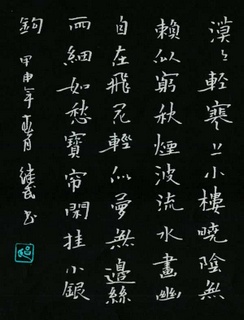 漠々輕寒上小樓曉陰無
賴似窮秋煙波流水畫幽
自在飛花輕似夢無邊絲
雨細如愁寶帘閑挂小銀
鉤 甲申年 书